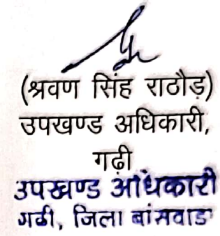 (श्रवण सिंह राठौड़)
उपखण्ड अधिकारी,
गढ़ी
उपखण्ड अधिकारी
गढी, जिला बांसवाड़ा